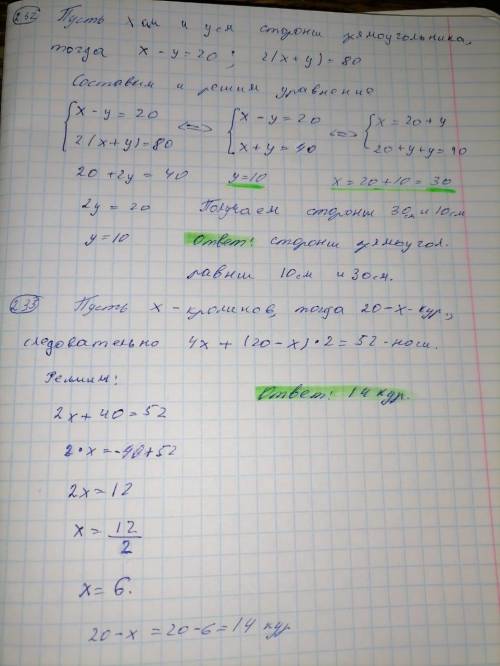 232 Пусть x см и y см стороны прямоугольника,
тогда x - y = 20 ; 2(x+y) = 80
Составим и решим уравнение
{ x - y = 20 <=> { x - y = 20 <=> { x = 20 + y
{ 2(x+y) = 80 { x + y = 40 { 20 + y + y = 40
20 + 2y = 40 y = 10 x = 20 + 10 = 30
2y = 20 Получаем стороны 30см и 10см
y = 10 Ответ: стороны прямоугол.
равны 10см и 30см.
235 Пусть x - кроликов, тогда 20 - x - кур,
следовательно 4x + (20 - x) * 2 = 52 - ног.
Решим:
2x + 40 = 52 Ответ: 14 кур.
2 * x = -40 + 52
2x = 12
x = 12/2
x = 6.
20 - x = 20 - 6 = 14 кур